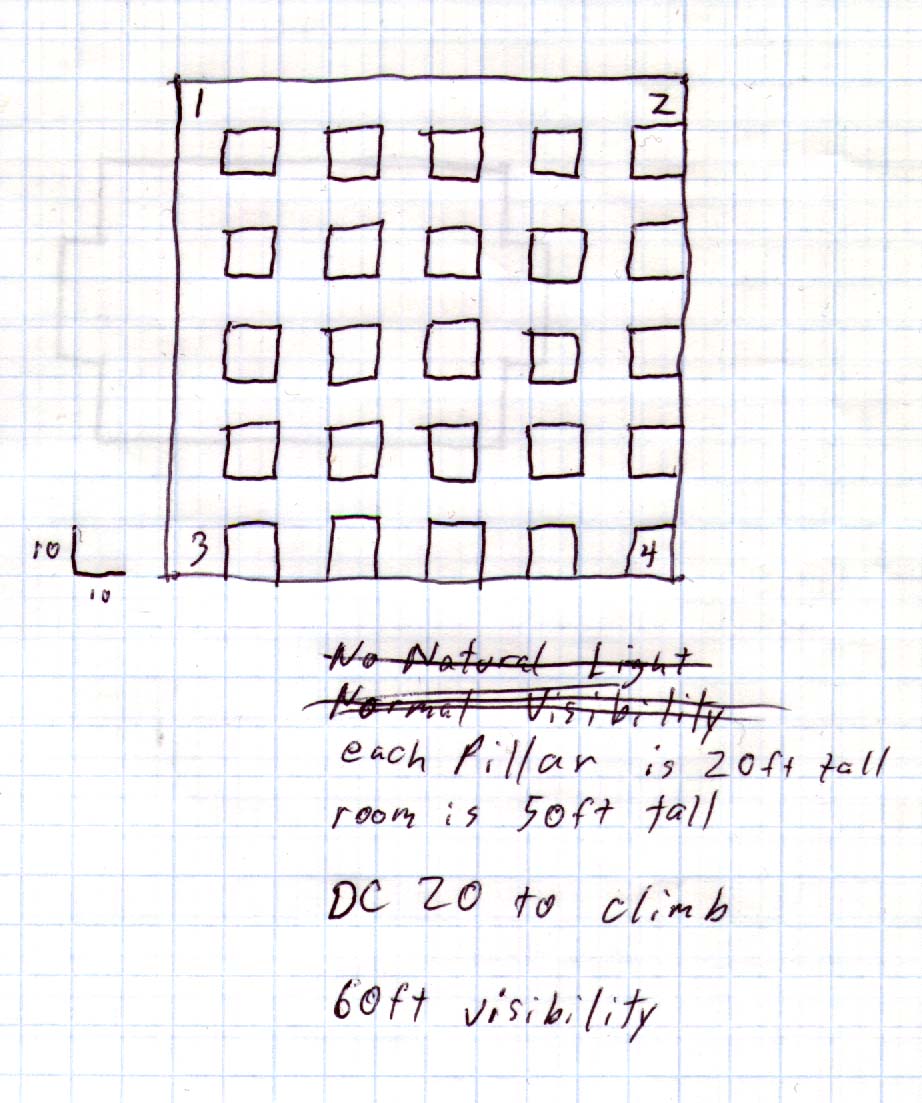 1
2
3
4
10
10
No Natural Light
Normal Visibility
each Pillar is 20ft tall
room is 50ft tall
DC 20 to climb
60ft visibility